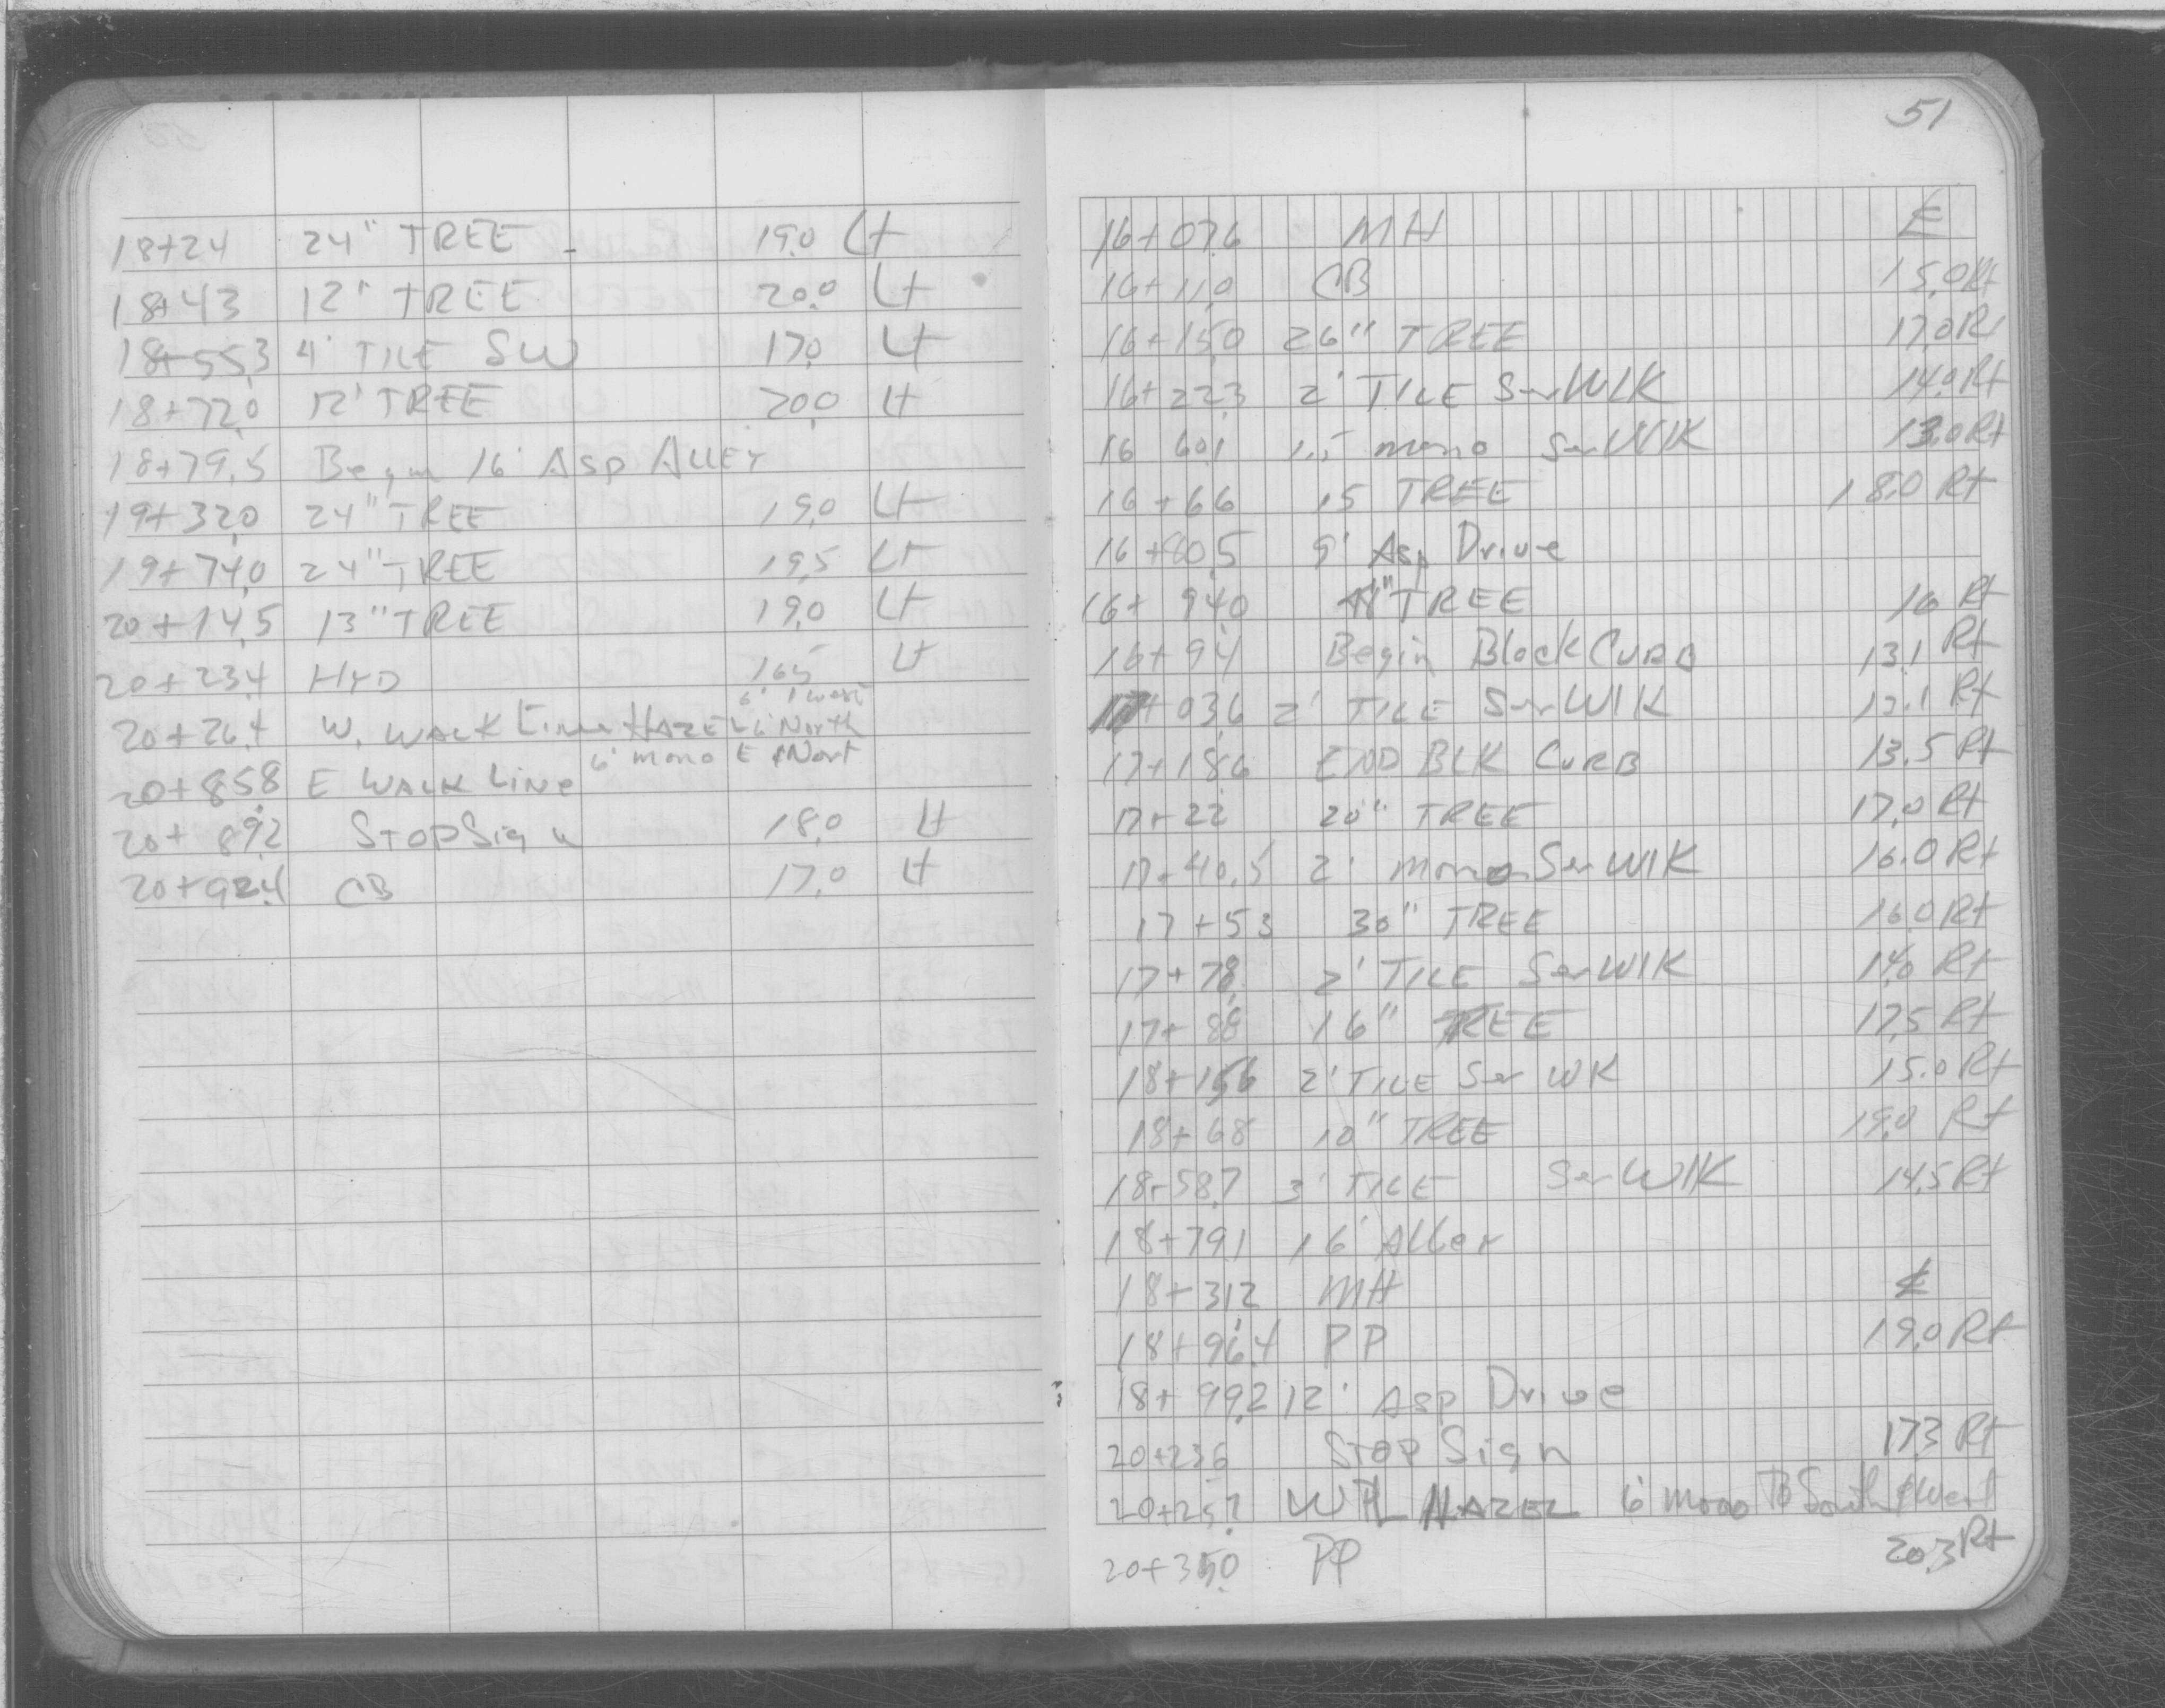 18+24 24" TREE - 19.0 Lt
18+43 12" TREE 20.0 Lt
18+55.3 4' TILE SW 17.0 Lt
18+72.0 12' TREE 20.0 Lt
18+79.5 Begin 16' Asp ALLEY
19+32.0 24" TREE 19.0 Lt
19+74.0 24" TREE 19.5 Lt
20+14.5 13" TREE 19.0 Lt
20+23.4 HYD 16.5 Lt
20+26.4 W. WALK Line HAZEL 6' North
6' mono E & Nort
20+85.8 E WALK Line
20+89.2 STOP Sign 18.0 Lt
20+92.4 CB 17.0 Lt
51
16+07.6 MH ℄
16+11.0 CB 15.0 Rt
16+15.0 26" TREE 17.0 Rt
16+22.3 2' TILE Ser WLK 14.0 Rt
16 60.1 1.5 mono Ser WlK 13.0 Rt
16+66 15 TREE 18.0 Rt
16+80.5 9' Asp Drive
16+94.0 TREE 16 Rt
16+94 Begin Block CURB 13.1 Rt
17+03.6 2' TILE Ser WlK 13.1 Rt
17+18.6 END BLK CURB 13.5 Rt
17+22 20" TREE 17.0 Rt
17+40.5 2' mono Ser WlK 16.0 Rt
17+53 30" TREE 16.0 Rt
17+78 2' TILE Ser WlK 14.0 Rt
17+88 16" TREE 17.5 Rt
18+15.6 2' TILE Ser WK 15.0 Rt
18+68 10" TREE 19.0 Rt
18+58.7 3' TILE Ser WlK 14.5 Rt
18+79.1 16' Alley
18+31.2 MH ℄
18+96.4 PP 19.0 Rt
18+99.2 12' Asp Drive
20+23.6 STOP Sign 17.3 Rt
20+25.7 WTL HAZEL 6' mono To South & West
20+35.0 PP 20.3 Rt